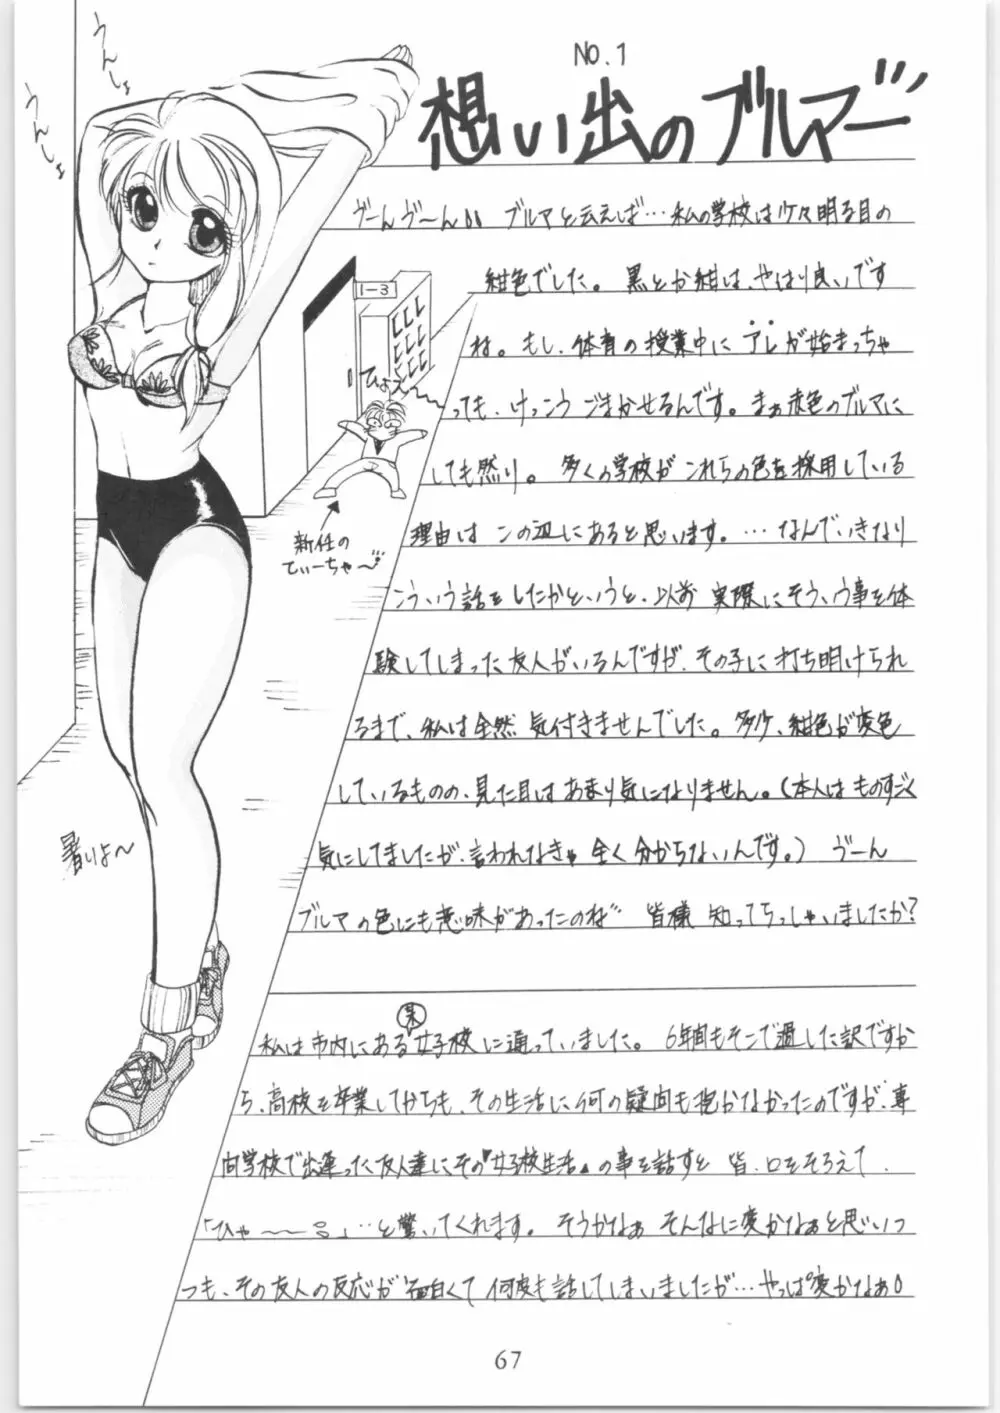 NO.1
想い出のブルマー
うんしょ
うんしょ
ゔーんゔーん!! ブルマと云えば…私の学校は少々明る目の
紺色でした。黒とか紺は、やはり良いです
ね。もし、体育の授業中にアレが始まっちゃ
っても、けっこうごまかせるんです。まぁ赤色のブルマに
しても然り。多くの学校がこれらの色を採用している
理由はこの辺にあると思います。…なんでいきなり
こういう話をしたかというと、以前実際にそういう事を体
験してしまった友人がいるんですが、その子に打ち明けられ
るまで、私は全然気付きませんでした。多少、紺色が変色
しているものの、見た目はあまり気になりません。(本人はものすごく
気にしてましたが、言われなきゃ全く分からないんです。) ゔーん
ブルマの色にも意味があったのね 皆様知ってらっしゃいましたか?
1-3
ひょえ〜
新任の
てぃーちゃ〜
暑いよ〜
私は市内にある某女子校に通っていました。6年間もそこで過した訳ですか
ら、高校を卒業してからも、その生活に何の疑問も抱かなかったのですが、専
門学校で出逢った友人達にその『女子校生活』の事を話すと皆、口をそろえて、
「ひゃ〜〜〜。」…と驚いてくれます。そうかなぁそんなに変かなぁと思いつ
つも、その友人の反応が面白くて何度も話してしまいましたが…やっぱ変かなぁ。
67